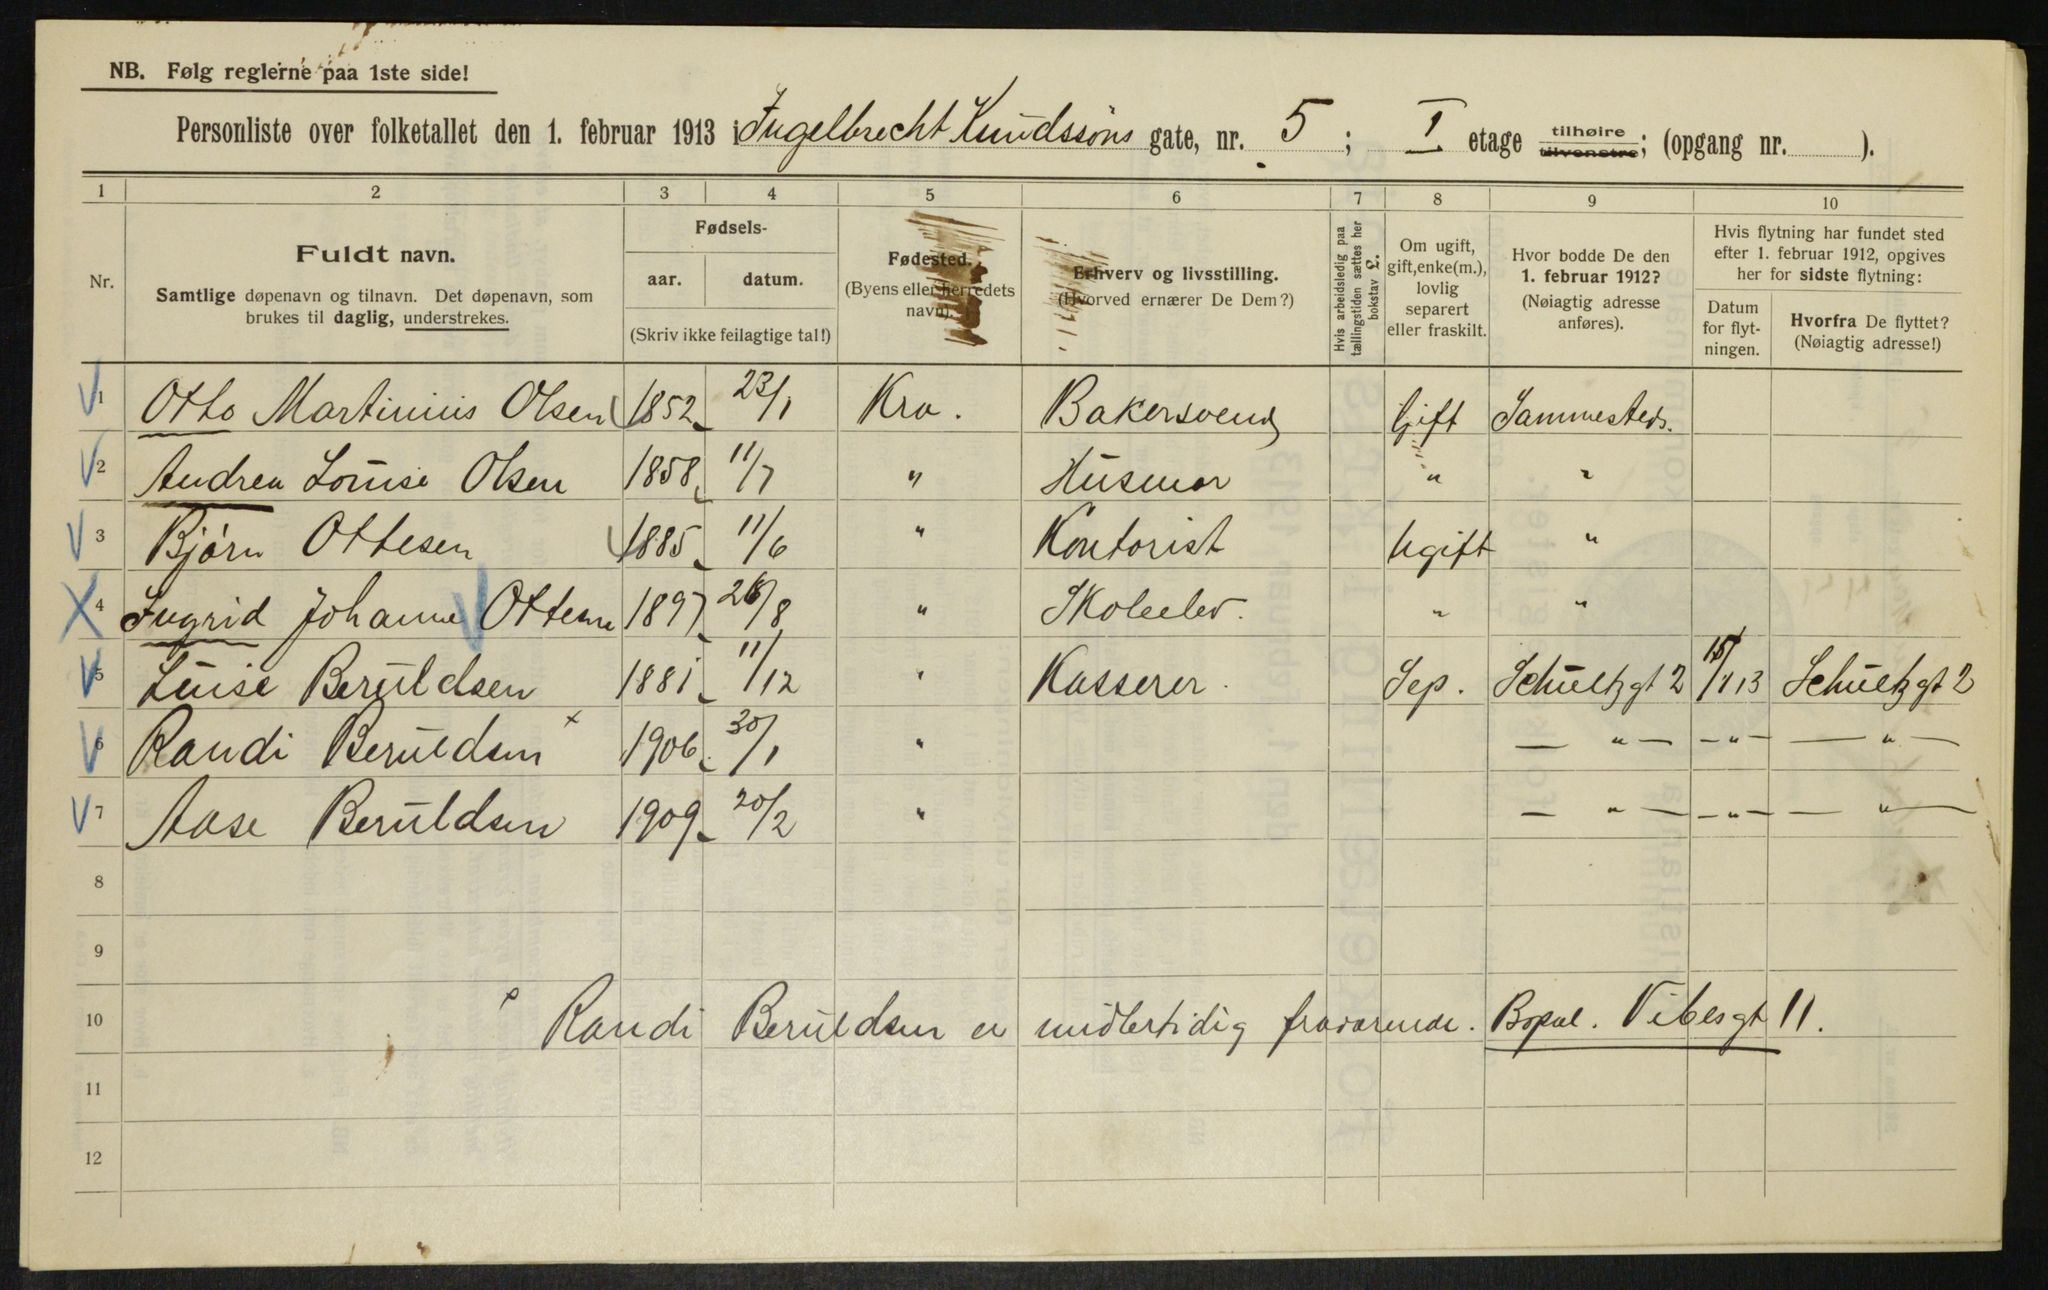 NB. Følg reglerne paa 1ste side!
Personliste over folketallet den 1. februar 1913 i Ingelbrecht Knudssøns gate, nr. 5; I etage tilhøire tilvenstre; (opgang nr. ).
1 2 3 4 5 6 7 8 9 10
Nr.
Fuldt navn.
Samtlige døpenavn og tilnavn. Det døpenavn, som
brukes til daglig, understrekes.
Fødsels-
aar. datum.
(Skriv ikke feilagtige tal!)
Fødested.
(Byens eller herredets
navn).
Erhverv og livsstilling.
(Hvorved ernærer De Dem?)
Hvis arbeidsledig paa
tællingstiden sættes her
bokstav £.
Om ugift,
gift, enke(m.),
lovlig
separert
eller fraskilt.
Hvor bodde De den
1. februar 1912?
(Nøiagtig adresse
anføres).
Hvis flytning har fundet sted
efter 1. februar 1912, opgives
her for sidste flytning:
Datum
for flyt-
ningen.
Hvorfra De flyttet?
(Nøiagtig adresse!)
1 Otto Martinius Olsen 1852 23/1 Kra. Bakersvend Gift Sammesteds.
2 Andrea Louise Olsen 1858 11/7 " Husmor " "
3 Bjørn Ottesen 1885 11/6 " Kontorist Ugift "
4 Ingrid Johanne Ottesen 1897 26/8 " Skoleelev. " "
5 Luise Beruldsen 1881 11/12 " Kasserer. Sep. Schultzgt 2 15/1 13 Schultzgt 2
6 Randi Beruldsen x 1906 30/1 " — " — — " — — " —
7 Aase Beruldsen 1909 20/2 " — " — — " — — " —
8
9
10 x Randi Beruldsen er midlertidig fraværende. Bopæl. Vibesgt 11.
11
12